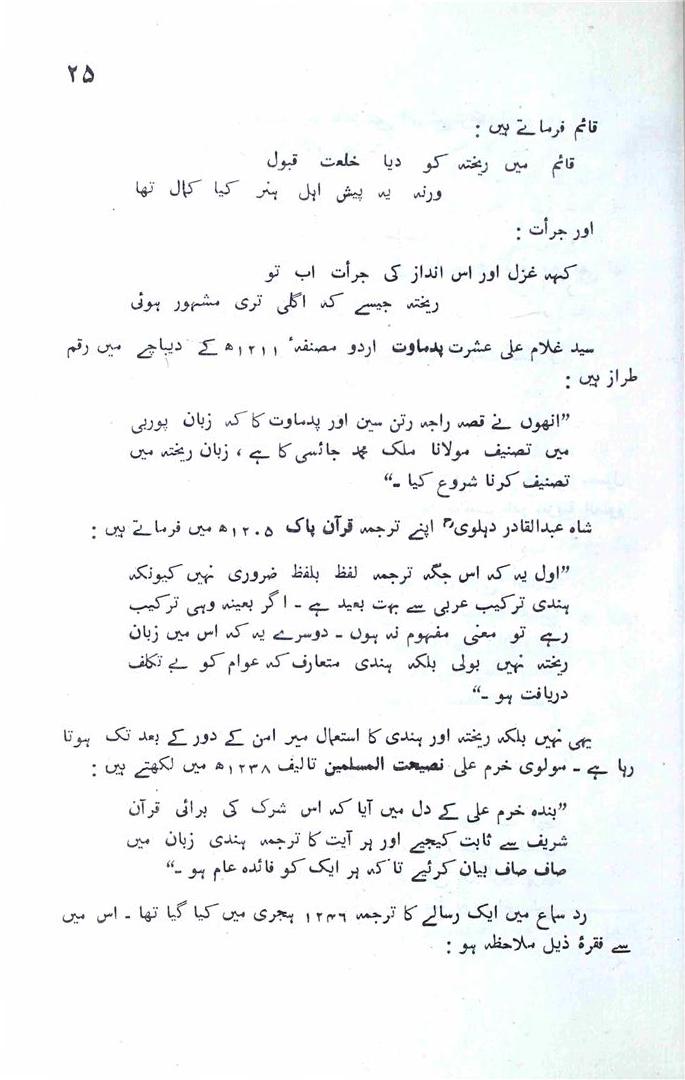 ۲۵
قائم فرماتے ہیں :
قائم میں ریختہ کو دیا خلعت قبول
ورنہ یہ پیش اہل ہنر کیا کمال تھا
اور جرأت :
کہہ غزل اور اس انداز کی جرأت اب تو
ریختہ جیسے کہ اگلی تری مشہور ہوئی
سید غلام علی عشرت پدماوت اردو مصنفہٴ ۱۲۱۱ھ کے دیباچے میں رقم
طراز ہیں :
”انھوں نے قصہ راجہ رتن سین اور پدماوت کا کہ زبان پوربی
میں تصنیف مولانا ملک محمد جائسی کا ہے ، زبان ریختہ میں
تصنیف کرنا شروع کیا ۔“
شاہ عبدالقادر دہلویؒ اپنے ترجمہ قرآن پاک ۱۲۰۵ھ میں فرماتے ہیں :
”اول یہ کہ اس جگہ ترجمہ لفظ بلفظ ضروری نہیں کیونکہ
ہندی ترکیب عربی سے بہت بعید ہے ۔ اگر بعینہ وہی ترکیب
رہے تو معنی مفہوم نہ ہوں ۔ دوسرے یہ کہ اس میں زبان
ریختہ نہیں بولی بلکہ ہندی متعارف کہ عوام کو بے تکلف
دریافت ہو ۔“
یہی نہیں بلکہ ریختہ اور ہندی کا استعمال میر امن کے دور کے بعد تک ہوتا
رہا ہے ۔ مولوی خرم علی نصیحت المسلمین تالیف ۱۲۳۸ھ میں لکھتے ہیں :
”بندہ خرم علی کے دل میں آیا کہ اس شرک کی برائی قرآن
شریف سے ثابت کیجیے اور ہر آیت کا ترجمہ ہندی زبان میں
صاف صاف بیان کرئیے تا کہ ہر ایک کو فائدہ عام ہو ۔“
رد سماع میں ایک رسالے کا ترجمہ ۱۲۴۶ ہجری میں کیا گیا تھا ۔ اس میں
سے فقرۂ ذیل ملاحظہ ہو :